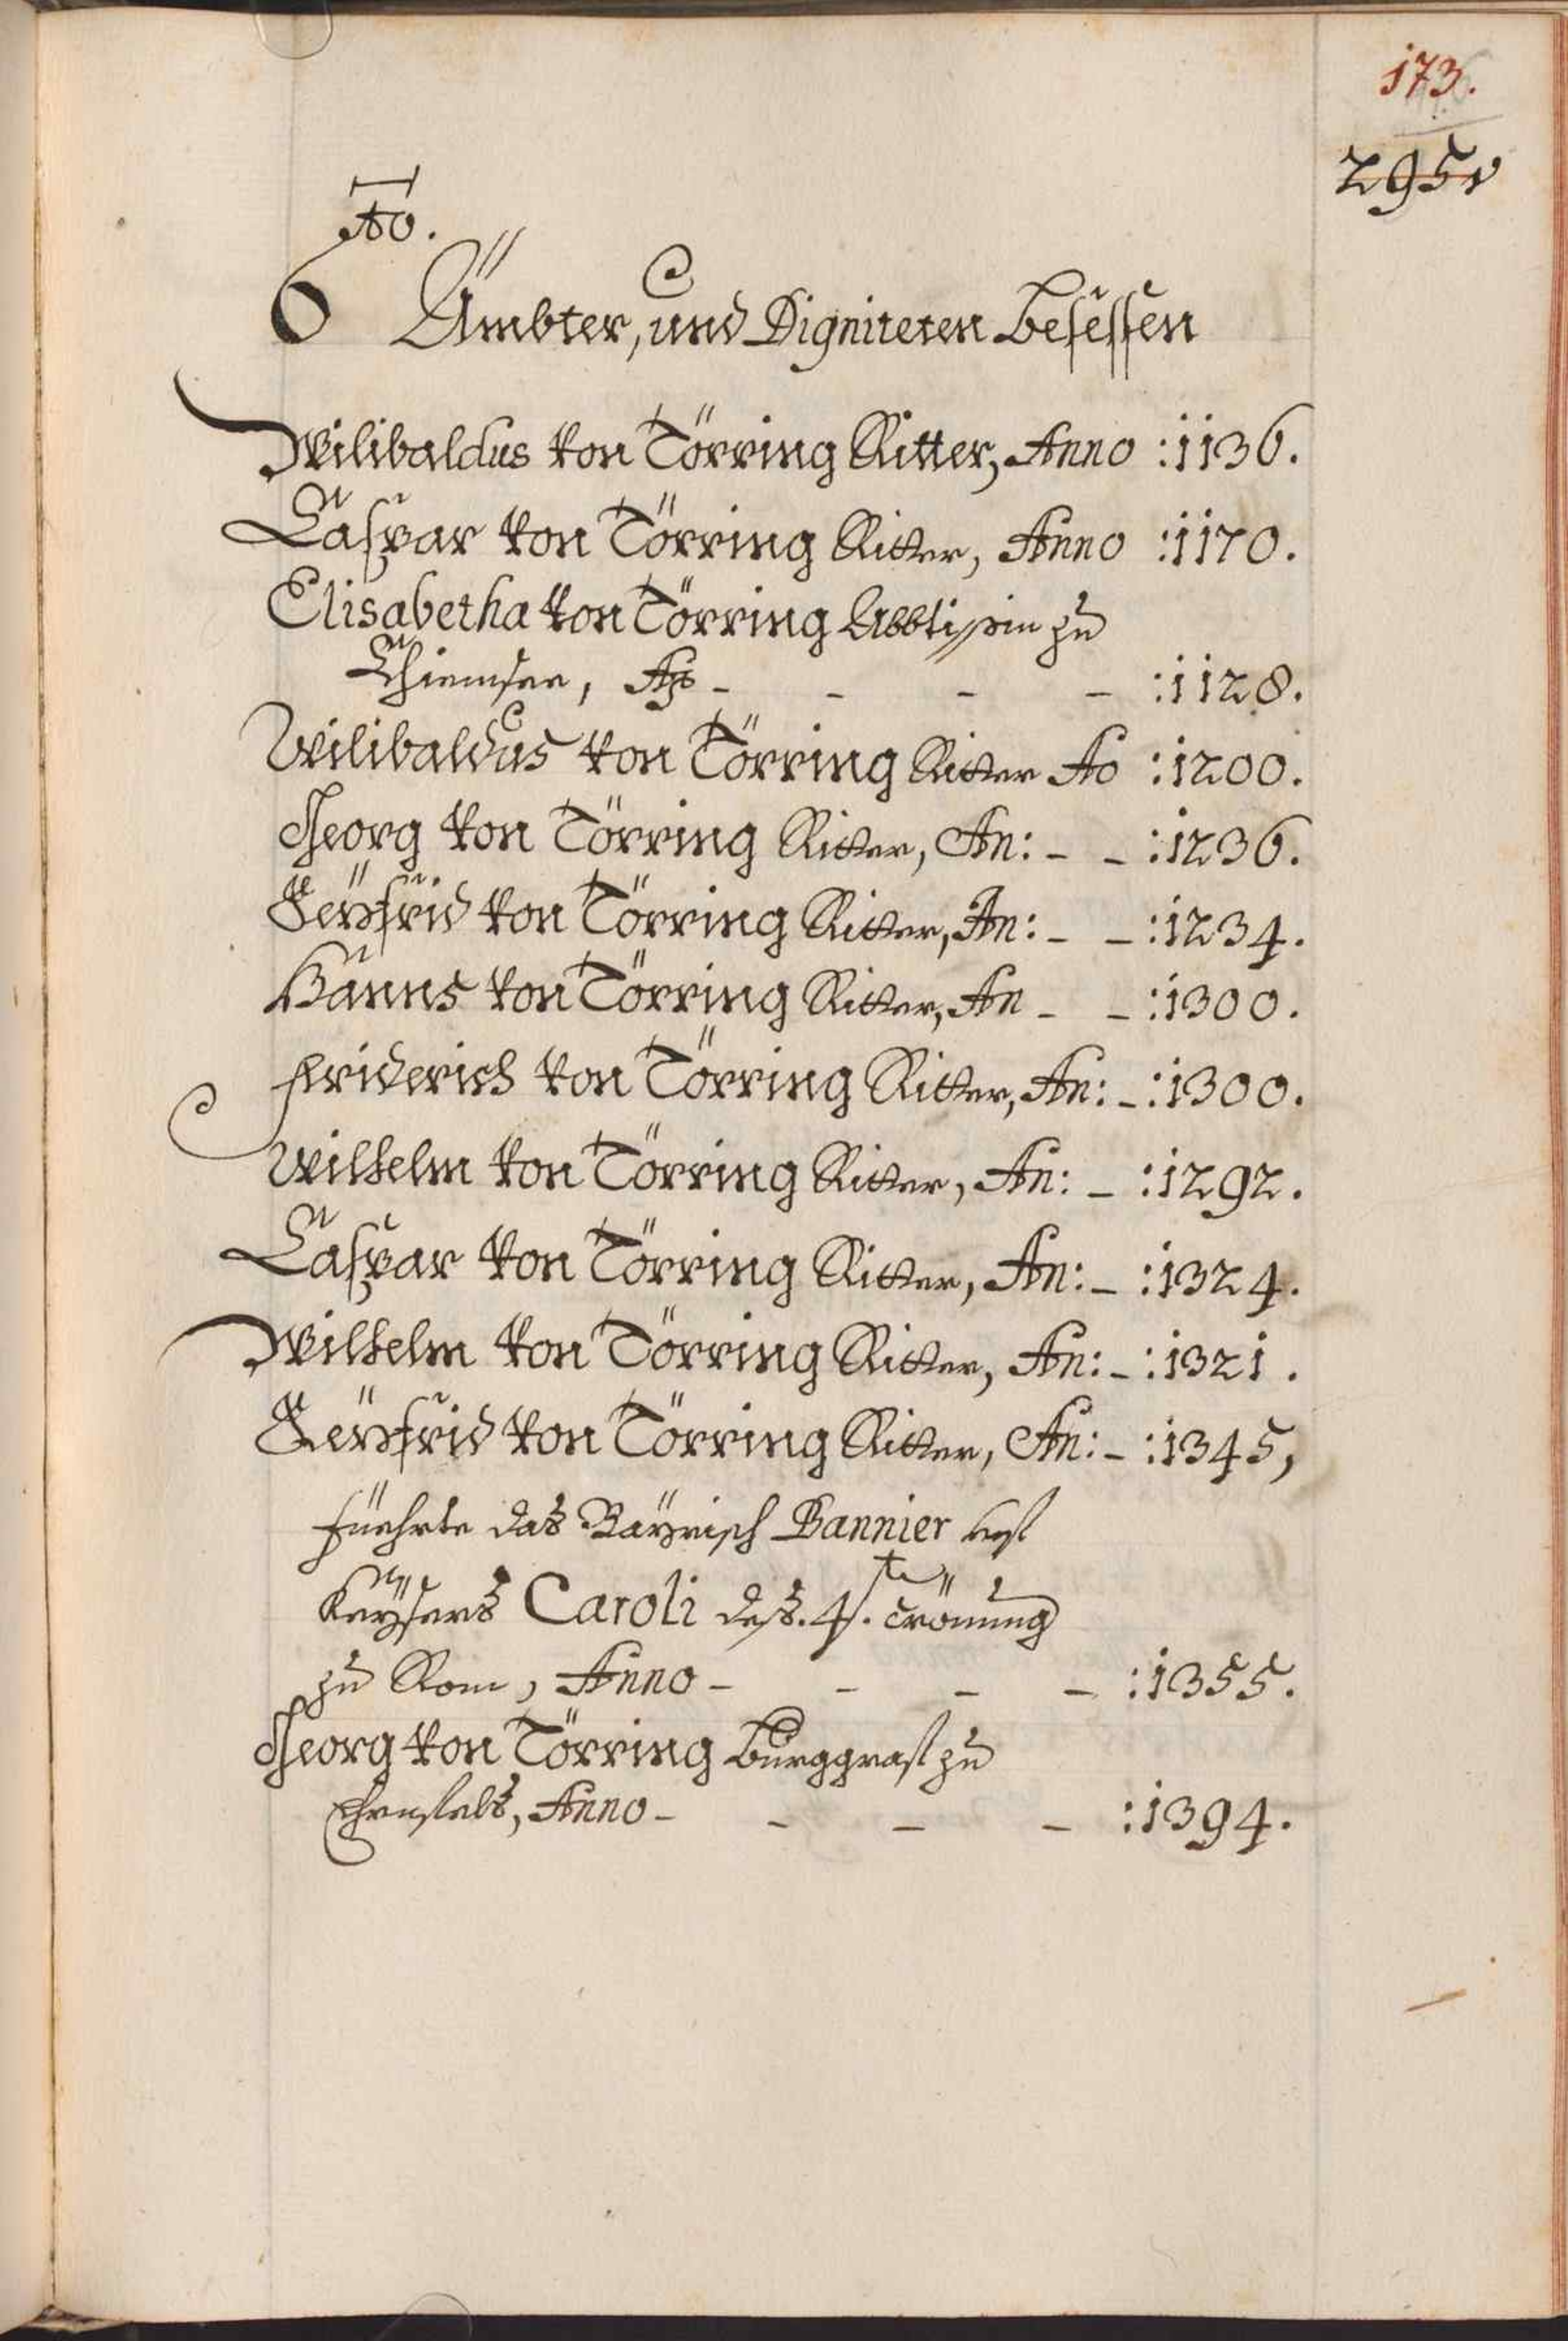 173.
295v
Ao.
Ämbter, und Digniteten Besessen
Wilibaldus von Törring Ritter, Anno :1136.
Caspar von Törring Ritter, Anno :1170.
Elisabetha von Törring Abbtissin zu
Chiemsee, Ao - - - - :1128.
Wilibaldus von Törring Ritter Ao :1200.
Georg von Törring Ritter, An: - - :1236.
Seyfrid von Törring Ritter, An: - - :1234.
Hanns von Törring Ritter, An - - :1300.
Friderich von Törring Ritter, An: - :1300.
Wilhelm von Törring Ritter, An: - :1292.
Caspar von Törring Ritter, An: - :1324.
Wilhelm von Törring Ritter, An: - :1321.
Seyfrid von Törring Ritter, An: - :1345,
füehrte das Bayrisch Bannier
Kaysers Caroli des 4.te Crönung
zu Rom, Anno - - - - :1355.
Georg von Törring Burggraf zu
Anno - - - - :1394.